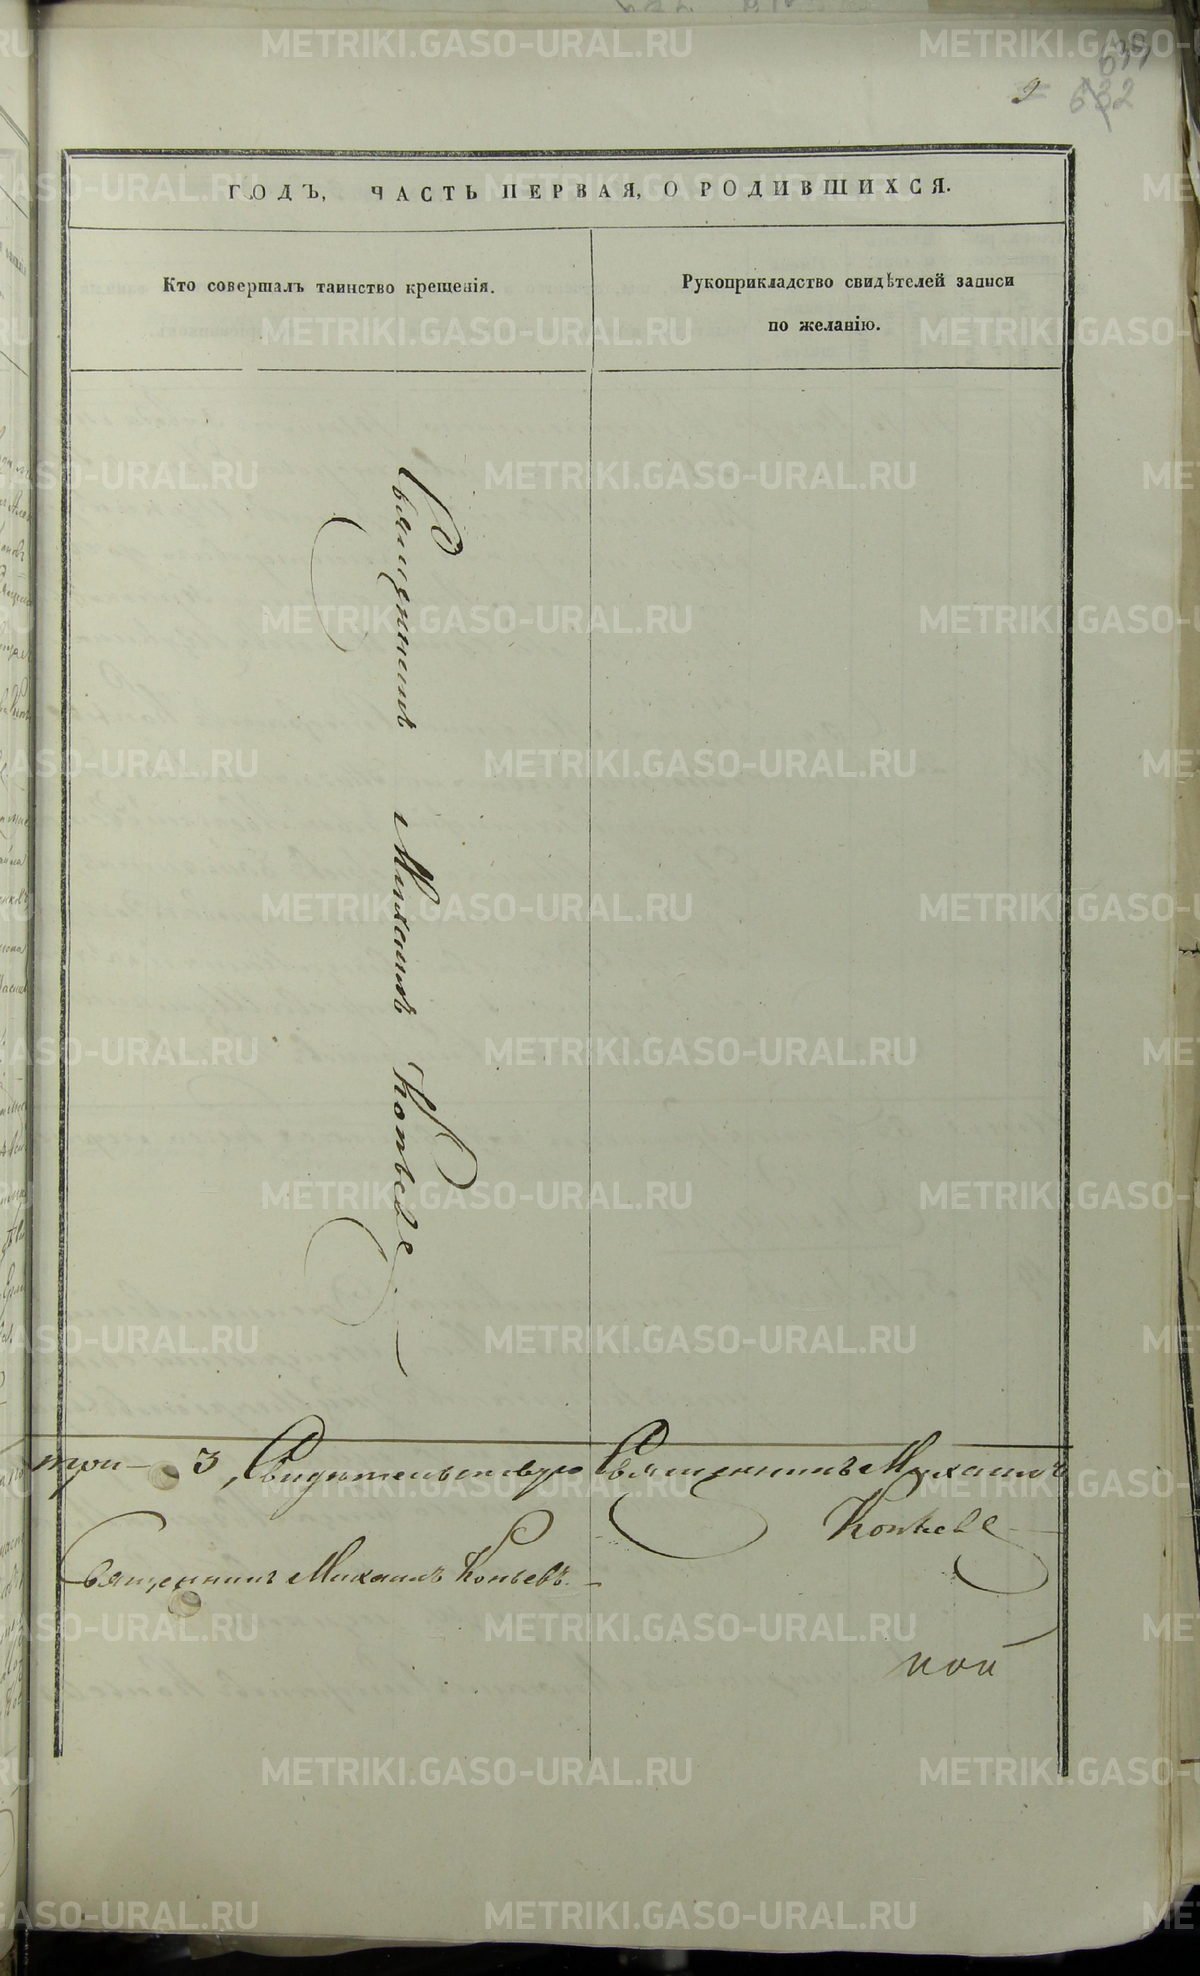 2
632
ГОДЪ, ЧАСТЬ ПЕРВАЯ, О РОДИВШИХСЯ.
Кто совершалъ таинство крещенія.
Рукоприкладство свидѣтелей записи
по желанію.
Священникъ Михаилъ Копьевъ
три — 3, Свидетельствую Священникъ Михаилъ
Копьевъ
Священникъ Михаилъ Копьевъ.
METRIKI.GASO-URAL.RU